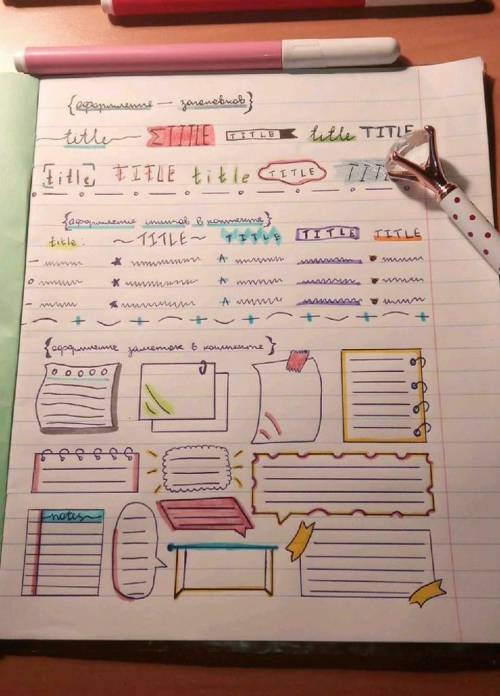 {оформление — заголовков}
title ΣTITLE TITLE title TITLE
[title] TITLE title TITLE TITLE
{оформление списков в конспекте}
title. ~TITLE~ TITLE TITLE TITLE
{оформление заметок в конспекте}
notes